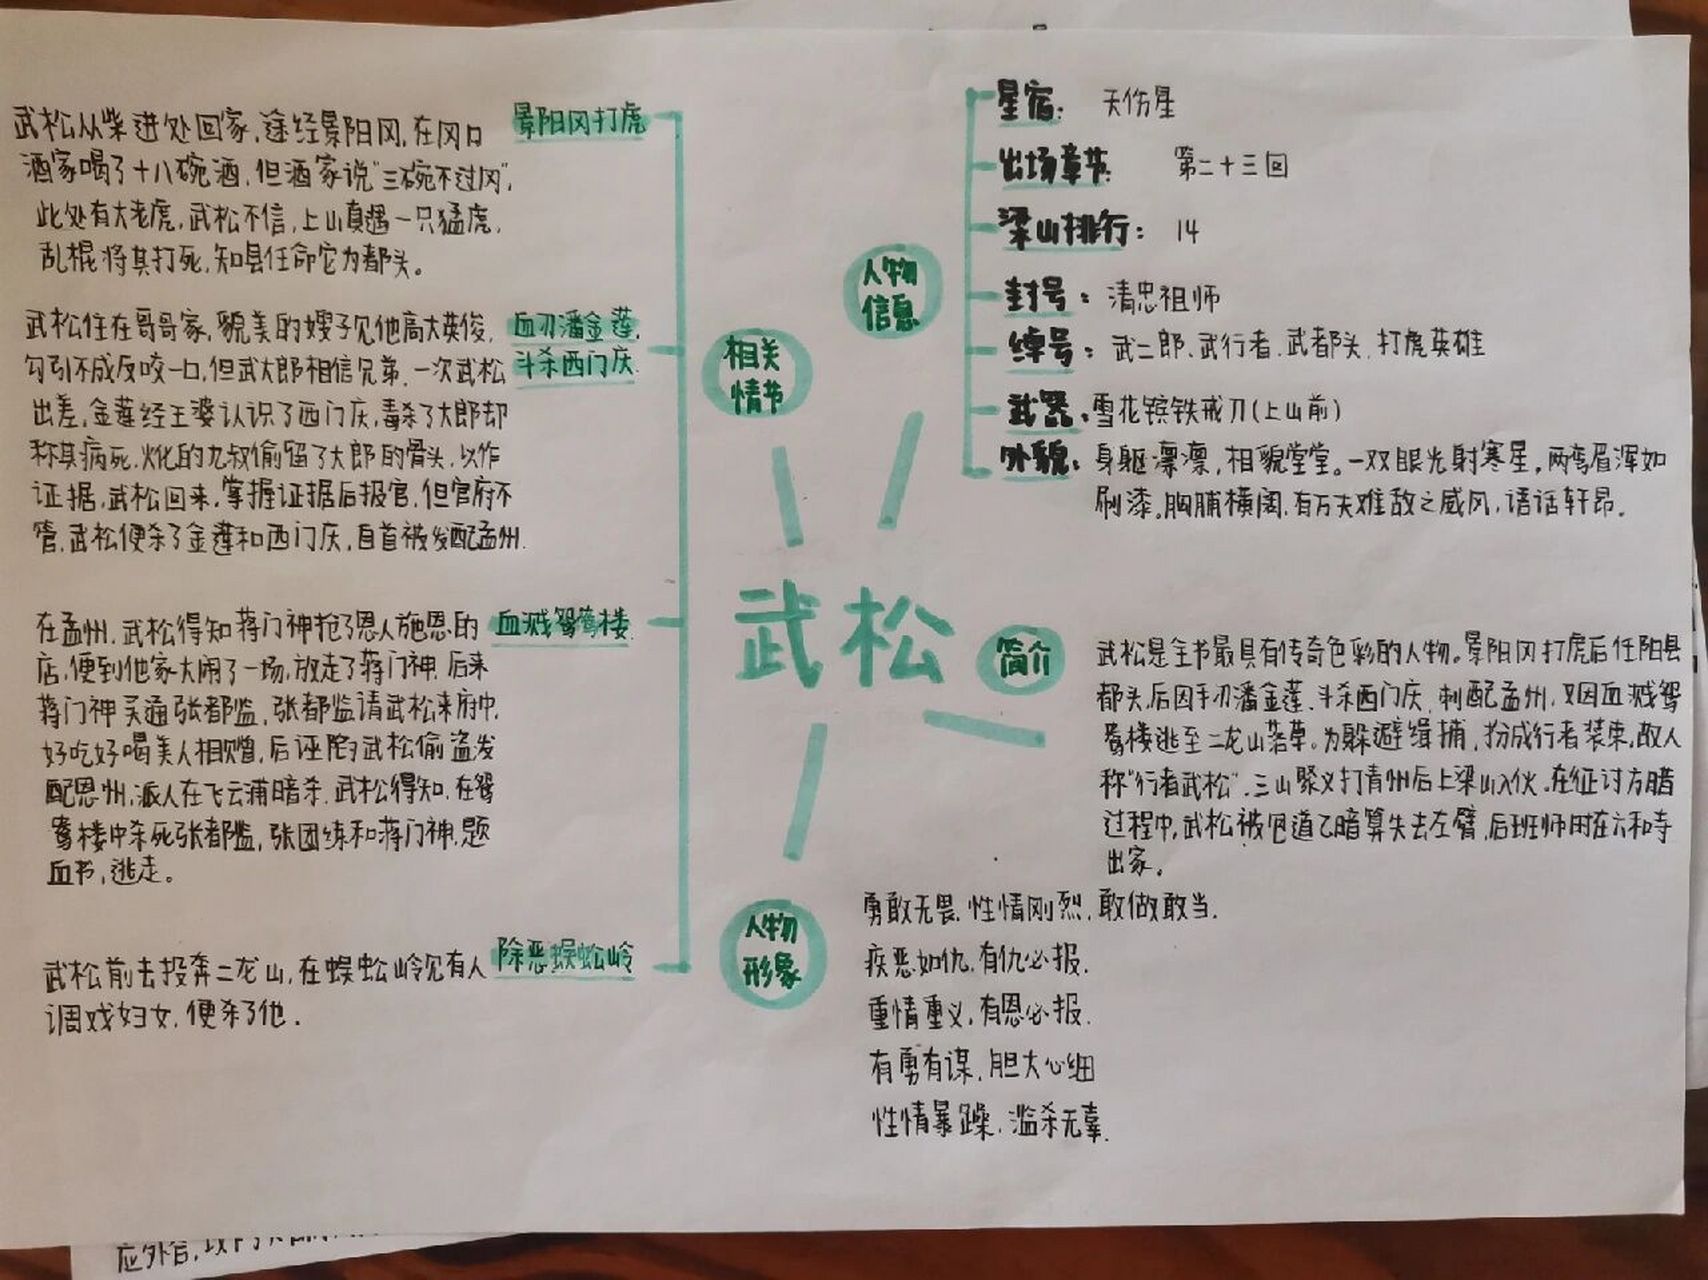 武松
相关
情节
景阳冈打虎
武松从柴进处回家,途经景阳冈,在冈口
酒家喝了十八碗酒,但酒家说"三碗不过冈",
此处有大老虎,武松不信,上山真遇一只猛虎,
乱棍将其打死,知县任命它为都头。
血刃潘金莲,
斗杀西门庆
武松住在哥哥家,貌美的嫂子见他高大英俊,
勾引不成反咬一口,但武大郎相信兄弟,一次武松
出差,金莲经王婆认识了西门庆,毒杀了大郎却
称其病死,火化的九叔偷留了大郎的骨头,以作
证据,武松回来,掌握证据后报官,但官府不
管,武松便杀了金莲和西门庆,自首被发配孟州.
血溅鸳鸯楼
在孟州,武松得知蒋门神抢了恩人施恩的
店,便到他家大闹了一场,放走了蒋门神,后来
蒋门神买通张都监,张都监请武松来府中,
好吃好喝美人相赠,后诬陷武松偷盗发
配恩州,派人在飞云浦暗杀,武松得知,在鸳
鸯楼中杀死张都监,张团练和蒋门神,题
血书,逃走。
除恶蜈蚣岭
武松前去投奔二龙山,在蜈蚣岭见有人
调戏妇女,便杀了他.
人物
信息
星宿: 天伤星
出场章节: 第二十三回
梁山排行: 14
封号: 清忠祖师
绰号: 武二郎、武行者、武都头、打虎英雄
武器: 雪花镔铁戒刀(上山前)
外貌: 身躯凛凛,相貌堂堂。一双眼光射寒星,两弯眉浑如
刷漆,胸脯横阔,有万夫难敌之威风,语话轩昂.
简介
武松是全书最具有传奇色彩的人物。景阳冈打虎后任阳县
都头,后因手刃潘金莲、斗杀西门庆,刺配孟州,又因血溅鸳
鸯楼逃至二龙山落草。为躲避缉捕,扮成行者装束,故人
称"行者武松".三山聚义打青州后上梁山入伙.在征讨方腊
过程中,武松被包道乙暗算失去左臂,后班师时在六和寺
出家。
人物
形象
勇敢无畏,性情刚烈,敢做敢当.
疾恶如仇,有仇必报.
重情重义,有恩必报.
有勇有谋,胆大心细
性情暴躁,滥杀无辜.